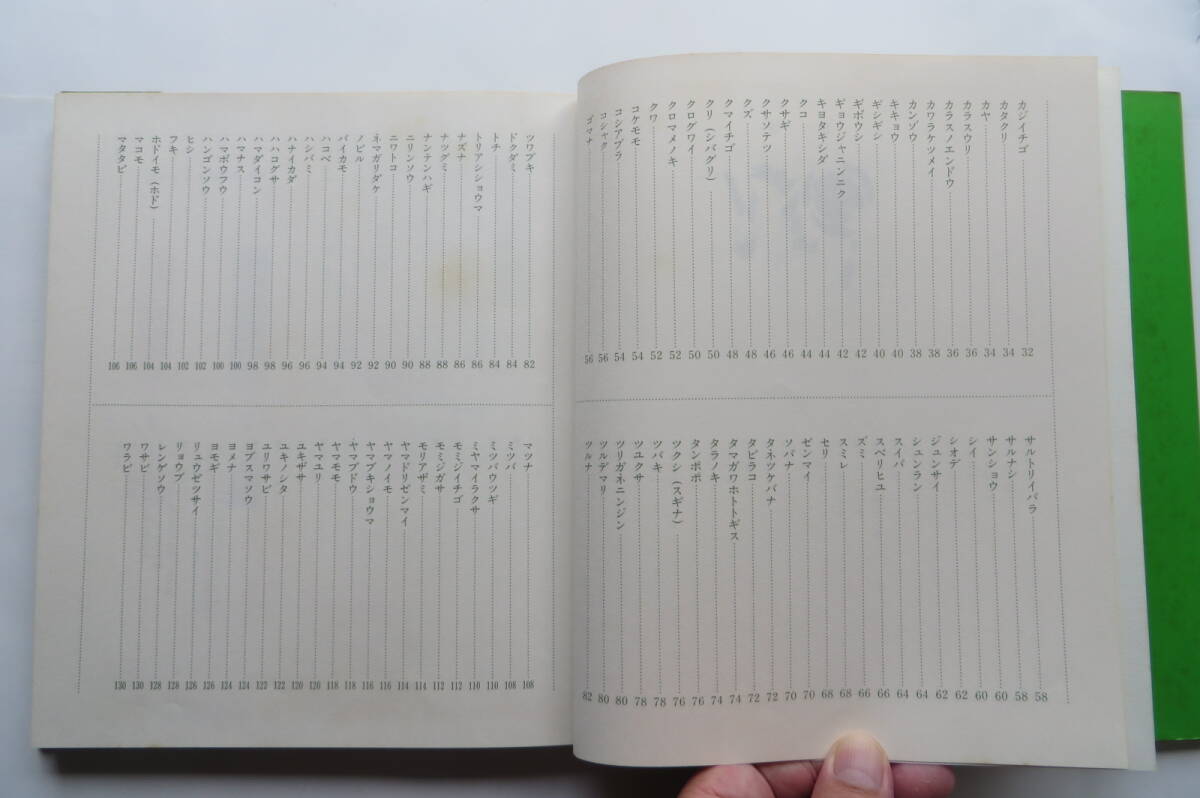 カジイチゴ 32
カタクリ 34
カヤ 34
カラスウリ 36
カラスノエンドウ 36
カワラケツメイ 38
カンゾウ 38
キキョウ 40
ギシギシ 40
ギボウシ 42
ギョウジャニンニク 42
キヨタキシダ 44
クコ 44
クサギ 46
クサソテツ 46
クズ 48
クマイチゴ 48
クリ（シバグリ） 50
クログワイ 50
クロマメノキ 52
クワ 52
コケモモ 54
コシアブラ 54
コシャク 56
ゴマナ 56
サルトリイバラ 58
サルナシ 58
サンショウ 60
シイ 60
シオデ 62
ジュンサイ 62
シュンラン 64
スイバ 64
スベリヒユ 66
ズミ 66
スミレ 68
セリ 68
ゼンマイ 70
ソバナ 70
タネツケバナ 72
タビラコ 72
タマガワホトトギス 74
タラノキ 74
タンポポ 76
ツクシ（スギナ） 76
ツバキ 78
ツユクサ 78
ツリガネニンジン 80
ツルデマリ 80
ツルナ 82
ツワブキ 82
ドクダミ 84
トチ 84
トリアシショウマ 86
ナズナ 86
ナツグミ 88
ナンテンハギ 88
ニリンソウ 90
ニワトコ 90
ネマガリダケ 92
ノビル 92
バイカモ 94
ハコベ 94
ハシバミ 96
ハナイカダ 96
ハハコグサ 98
ハマダイコン 98
ハマナス 100
ハマボウフウ 100
ハンゴンソウ 102
ヒシ 102
フキ 104
ホドイモ（ホド） 104
マコモ 106
マタタビ 106
マツナ 108
ミツバ 108
ミツバウツギ 110
ミヤマイラクサ 110
モミジイチゴ 112
モミジガサ 112
モリアザミ 114
ヤマドリゼンマイ 114
ヤマノイモ 116
ヤマブキショウマ 116
ヤマブドウ 118
ヤマモモ 118
ヤマユリ 120
ユキザサ 120
ユキノシタ 122
ユリワサビ 122
ヨブスマソウ 124
ヨメナ 124
ヨモギ 126
リュウゼツサイ 126
リョウブ 128
レンゲソウ 128
ワサビ 130
ワラビ 130